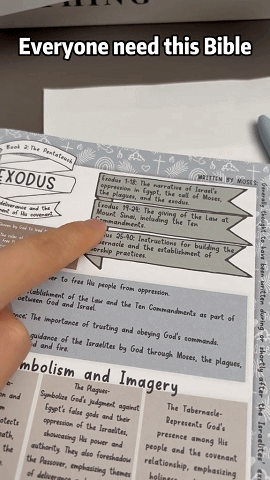 Everyone need this Bible
Book 2: The Pentateuch
EXODUS
WRITTEN BY MOSES
Exodus 1-18: The narrative of Israel's
oppression in Egypt, the call of Moses,
the plagues, and the exodus.
Exodus 19-24: The giving of the Law at
Mount Sinai, including the Ten
Commandments.
25-40: Instructions for building the
and the establishment of
practices.
deliverance and the
of his covenant
to free His people from oppression.
of the Law and the Ten Commandments as part of
between God and Israel.
The importance of trusting and obeying God's commands.
guidance of the Israelites by God through Moses, the plagues,
and fire.
Generally thought to have been written during or shortly after the Israelites'
and Imagery
The Plagues-
Symbolize God's judgment against
Egypt's false gods and their
oppression of the Israelites,
showcasing His power and
authority. They also foreshadow
the Passover, emphasizing themes
of deliverance
The Tabernacle-
Represents God's
presence among His
people and the covenant
relationship, emphasizing
holiness